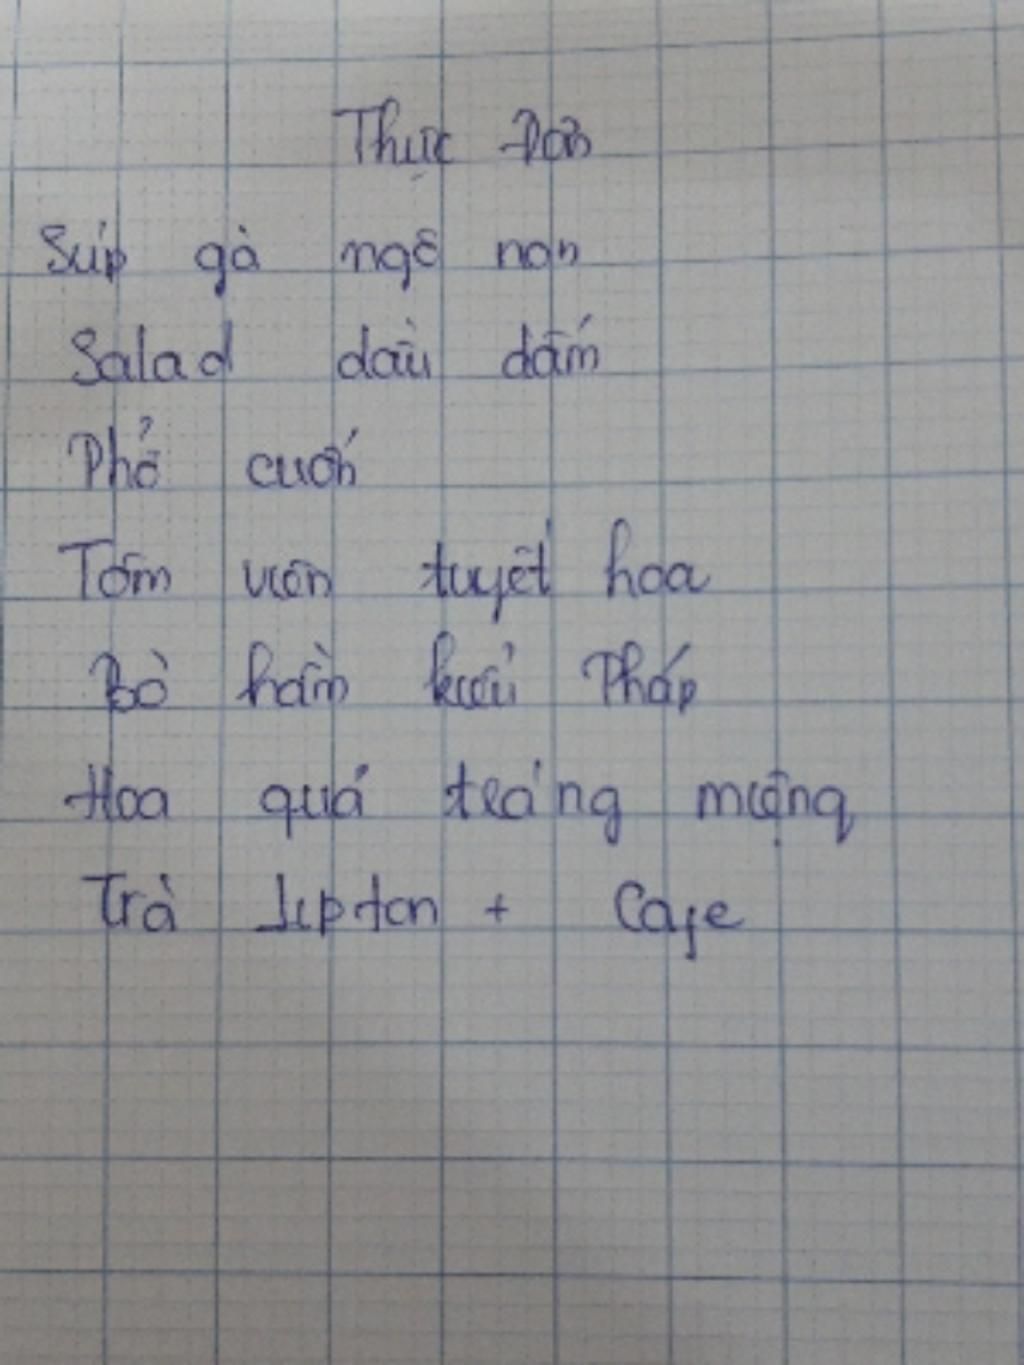 Thực Đơn
Súp gà ngô non
Salad dầu dấm
Phở cuốn
Tôm viên tuyết hoa
Bò hầm kiểu Pháp
Hoa quả tráng miệng
Trà Lipton + Cafe